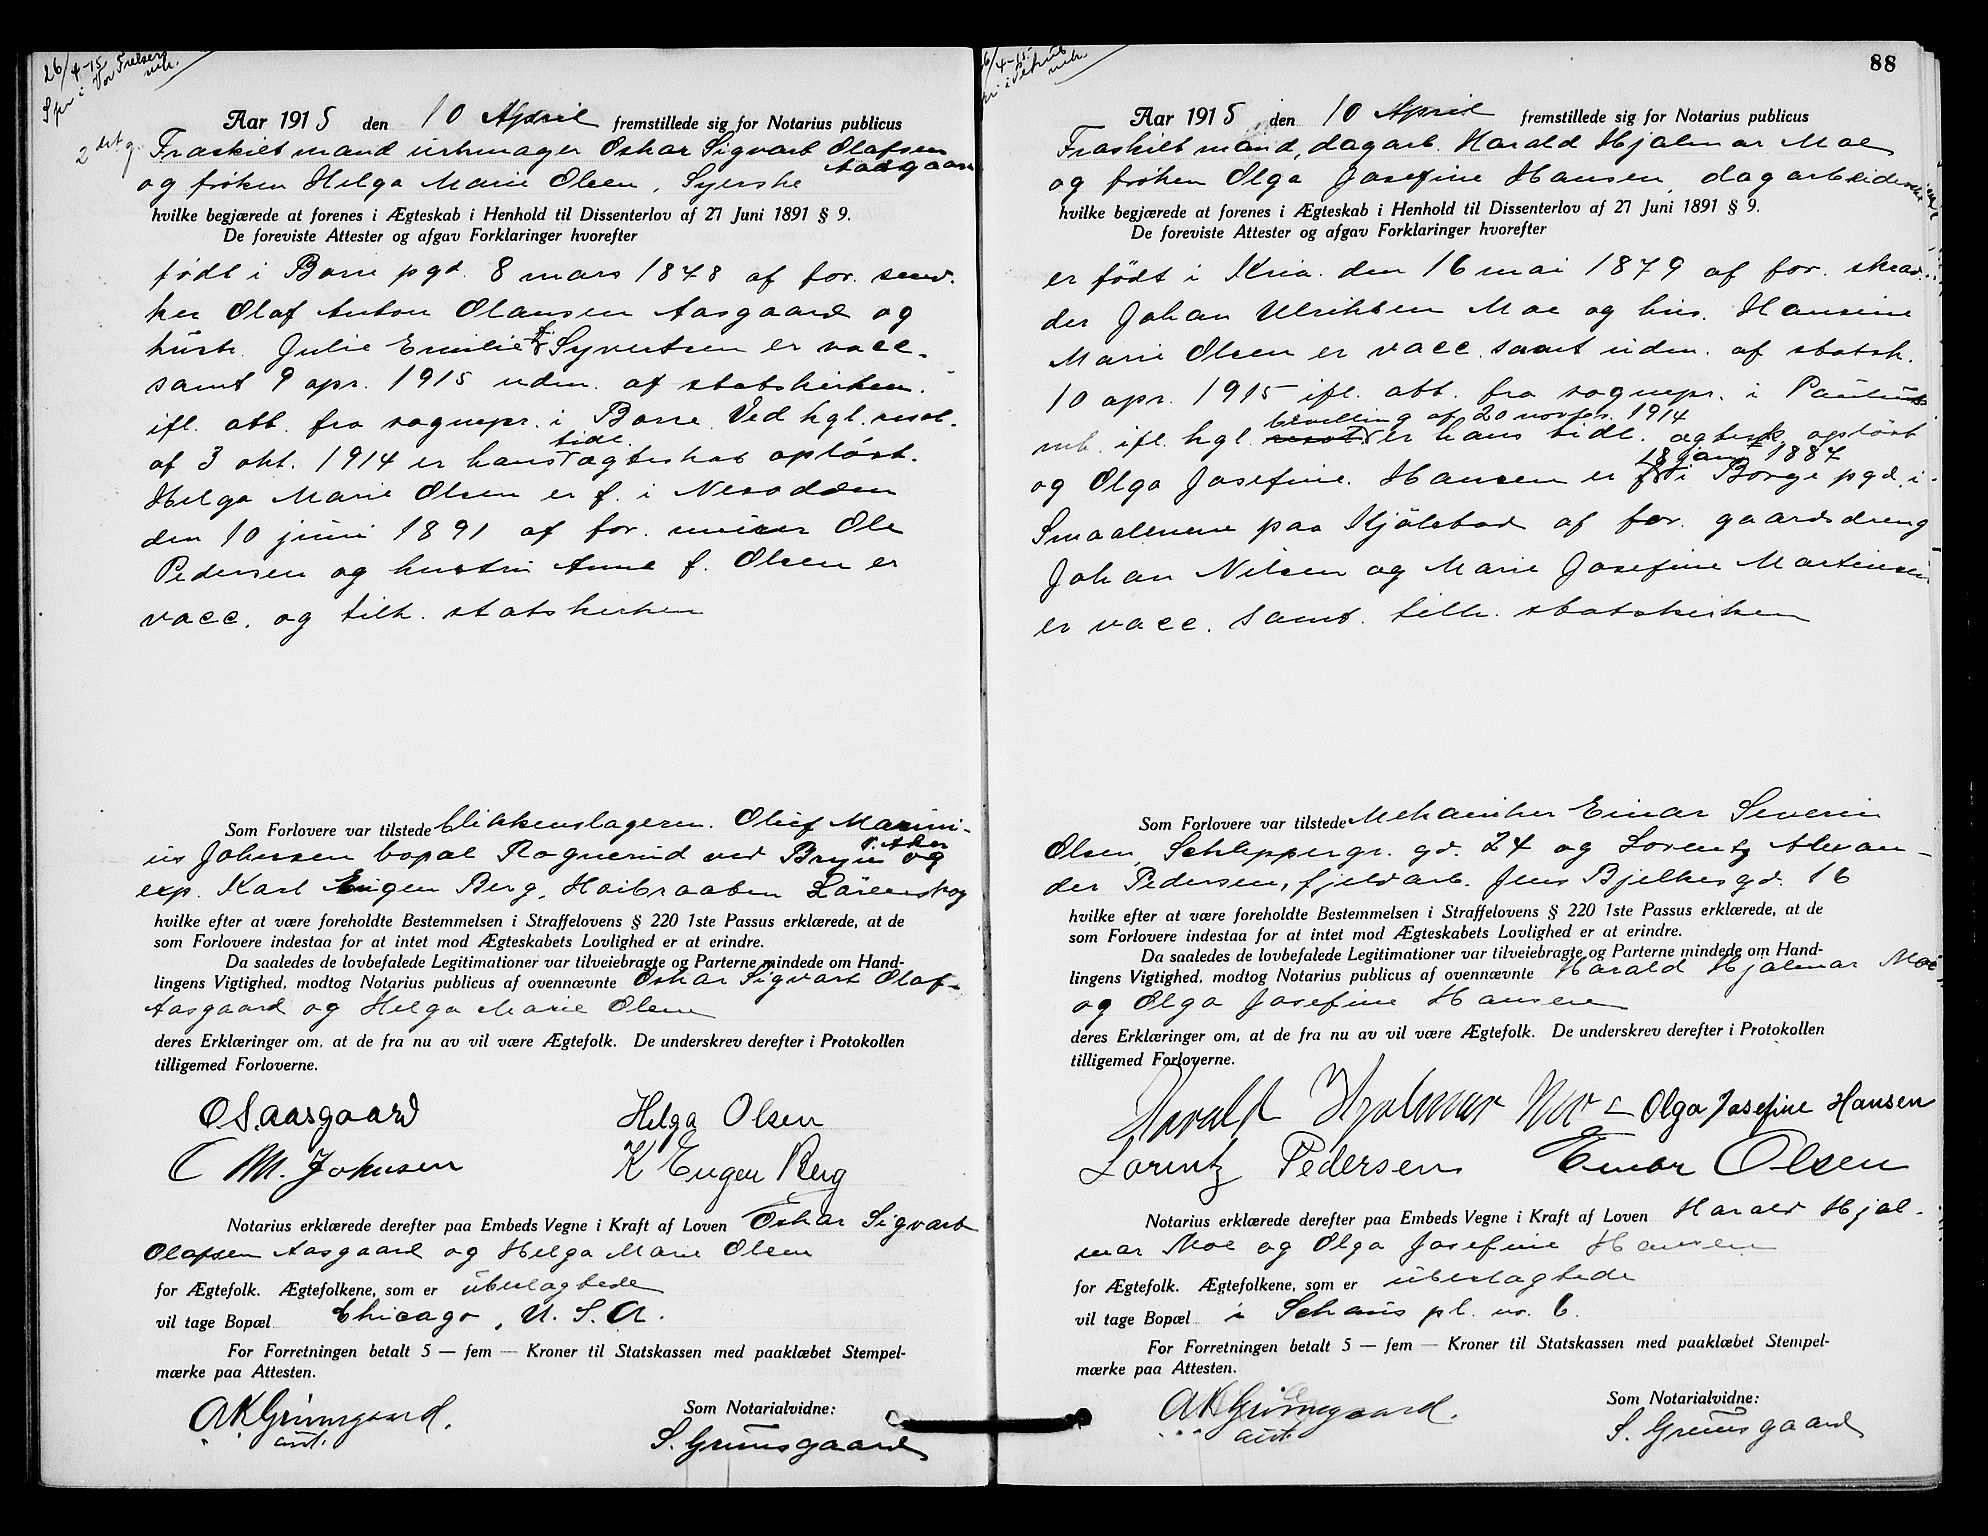 26/4-15
Spr i Vor Frelsers
mh.
Aar 1915 den 10 April fremstillede sig for Notarius publicus
Fraskilt mand urmager Oskar Sigvart Olafsen
Aasgaard
og frøken Helga Marie Olsen, Syerske
hvilke begjærede at forenes i Ægteskab i Henhold til Dissenterlov af 27 Juni 1891 § 9.
De foreviste Attester og afgav Forklaringer hvorefter
født i Borre pgd. 8 mars 1878 af for. sned-
ker Olaf Anton Olausen Aasgaard og
hustr. Julie Emilie f. Syvertsen er vacc.
samt 9 apr. 1915 udm. af statskirken.
ifl. att. fra sognepr. i Borre. Ved kgl. resol.
af 3 okt. 1914 er hans tidl. ægteskab opløst.
Helga Marie Olsen er f. i Nesodden
den 10 juni 1891 af for. murer Ole
Pedersen og hustru Anne f. Olsen er
vacc. og tilh. statskirken
Som Forlovere var tilstede blikkenslageren. Oluf Marini-
us Johnsen bopæl Rognerud ved Bryn i Aker og
exp. Karl Eugen Berg, Hoibraaben Lörenskog
hvilke efter at være foreholdte Bestemmelsen i Straffelovens § 220 1ste Passus erklærede, at de
som Forlovere indestaa for at intet mod Ægteskabets Lovlighed er at erindre.
Da saaledes de lovbefalede Legitimationer var tilveiebragte og Parterne mindede om Hand-
lingens Vigtighed, modtog Notarius publicus af ovennævnte Oskar Sigvart Olaf-
Aasgaard og Helga Marie Olsen
deres Erklæringer om, at de fra nu av vil være Ægtefolk. De underskrev derefter i Protokollen
tilligemed Forloverne.
O. S. Aasgaard Helga Olsen
O M. Johnsen K Eugen Berg
Notarius erklærede derefter paa Embeds Vegne i Kraft af Loven Oskar Sigvart
Olafsen Aasgaard og Helga Marie Olsen
for Ægtefolk. Ægtefolkene, som er ubeslægtede
vil tage Bopæl Chicago, U. S. A.
For Forretningen betalt 5 — fem — Kroner til Statskassen med paaklæbet Stempel-
mærke paa Attesten.
AKGrimsgaard.
aut.
Som Notarialvidne:
S. Grimsgaard
88
26/4-15
Spr i Petrus
mh.
Aar 1915 den 10 April fremstillede sig for Notarius publicus
Fraskilt mand, dagarb. Harald Hjalmar Moe
og frøken Olga Josefine Hansen, dagarbeiderske
hvilke begjærede at forenes i Ægteskab i Henhold til Dissenterlov af 27 Juni 1891 § 9.
De foreviste Attester og afgav Forklaringer hvorefter
er født i Kria. den 16 mai 1879 af for. skræd-
der Johan Ulriksen Moe og hus. Hansine
Marie Olsen er vacc. samt udm. af statsk.
10 apr. 1915 ifl. att. fra sognepr. i Paulus
mh. ifl. kgl. resol. bevilling af 20 novbr. 1914 er hans tidl. ægtesk. opløst
og Olga Josefine. Hansen er f. 18 jan. 1887 i Borge pgd. i
Smaalenene paa Kjölstad af for. gaardsdreng
Johan Nilsen og Marie Josefine Martinsen
er vacc. samt. tilh. statskirken
Som Forlovere var tilstede Mekaniker Einar Severin
Olsen, Schleppergr. gd. 24 og Lorentz Alexan-
der Pedersen, fjeldarb. Jens Bjelkesgd. 16
hvilke efter at være foreholdte Bestemmelsen i Straffelovens § 220 1ste Passus erklærede, at de
som Forlovere indestaa for at intet mod Ægteskabets Lovlighed er at erindre.
Da saaledes de lovbefalede Legitimationer var tilveiebragte og Parterne mindede om Hand-
lingens Vigtighed, modtog Notarius publicus af ovennævnte Harald Hjalmar Moe
og Olga Josefine Hansen
deres Erklæringer om, at de fra nu av vil være Ægtefolk. De underskrev derefter i Protokollen
tilligemed Forloverne.
Harald Hjalmar Moe Olga Josefine Hansen
Lorentz Pedersen Einar Olsen
Notarius erklærede derefter paa Embeds Vegne i Kraft af Loven Harald Hjal-
mar Moe og Olga Josefine Hansen
for Ægtefolk. Ægtefolkene, som er ubeslægtede
vil tage Bopæl i Schaus pl. nr. 6.
For Forretningen betalt 5 — fem — Kroner til Statskassen med paaklæbet Stempel-
mærke paa Attesten.
AKGrimsgaard.
aut
Som Notarialvidne:
S. Grimsgaard